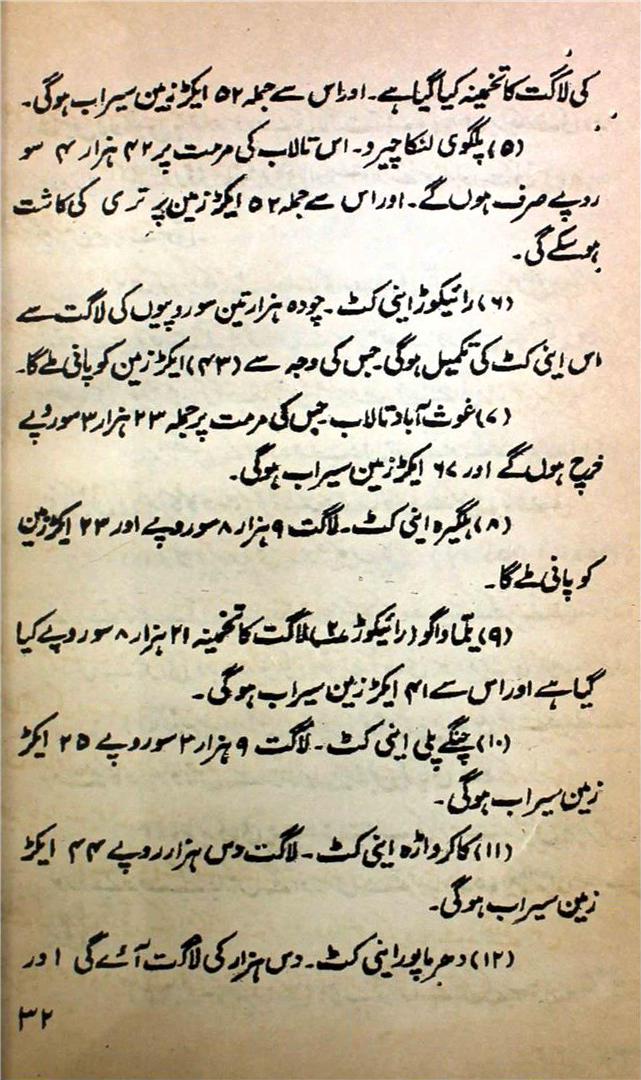 کی لاگت کا تخمینہ کیا گیا ہے۔ اور اس سے جملہ ۵۲ ایکڑ زمین سیراب ہوگی۔
(۵) پلگوی لنکا چیرو۔ اس تالاب کی مرمت پر ۴۲ ہزار ۴ سو
روپے صرف ہوں گے۔ اور اس سے جملہ ۵۲ ایکڑ زمین پر تری کی کاشت
ہو سکے گی۔
(۶) رائیکوڑ اینی کٹ ۔ چودہ ہزار تین سو روپیوں کی لاگت سے
اس اینی کٹ کی تکمیل ہوگی جس کی وجہ سے (۴۳) ایکڑ زمین کو پانی ملے گا۔
(۷) غوث آباد تالاب جس کی مرمت پر جملہ ۲۳ ہزار ۳ سو روپے
خرچ ہوں گے اور ۶۷ ایکڑ زمین سیراب ہوگی۔
(۸) ہلگیرہ اینی کٹ۔ لاگت ۹ ہزار ۸ سو روپے اور ۲۳ ایکڑ زمین
کو پانی ملے گا۔
(۹) یلما واگو (رائیکوڑ ۲) لاگت کا تخمینہ ۲۱ ہزار ۸ سو روپے کیا
گیا ہے اور اس سے ۴۱ ایکڑ زمین سیراب ہوگی ۔
(۱۰) چنگے پلی اینی کٹ ۔ لاگت ۹ ہزار ۲ سو روپے ۲۵ ایکڑ
زمین سیراب ہوگی۔
(۱۱) کاکرواڑہ اینی کٹ ۔ لاگت دس ہزار روپے ۴۴ ایکڑ
زمین سیراب ہوگی۔
(۱۲) دھرماپور اینی کٹ۔ دس ہزار کی لاگت آئے گی اور
۳۲